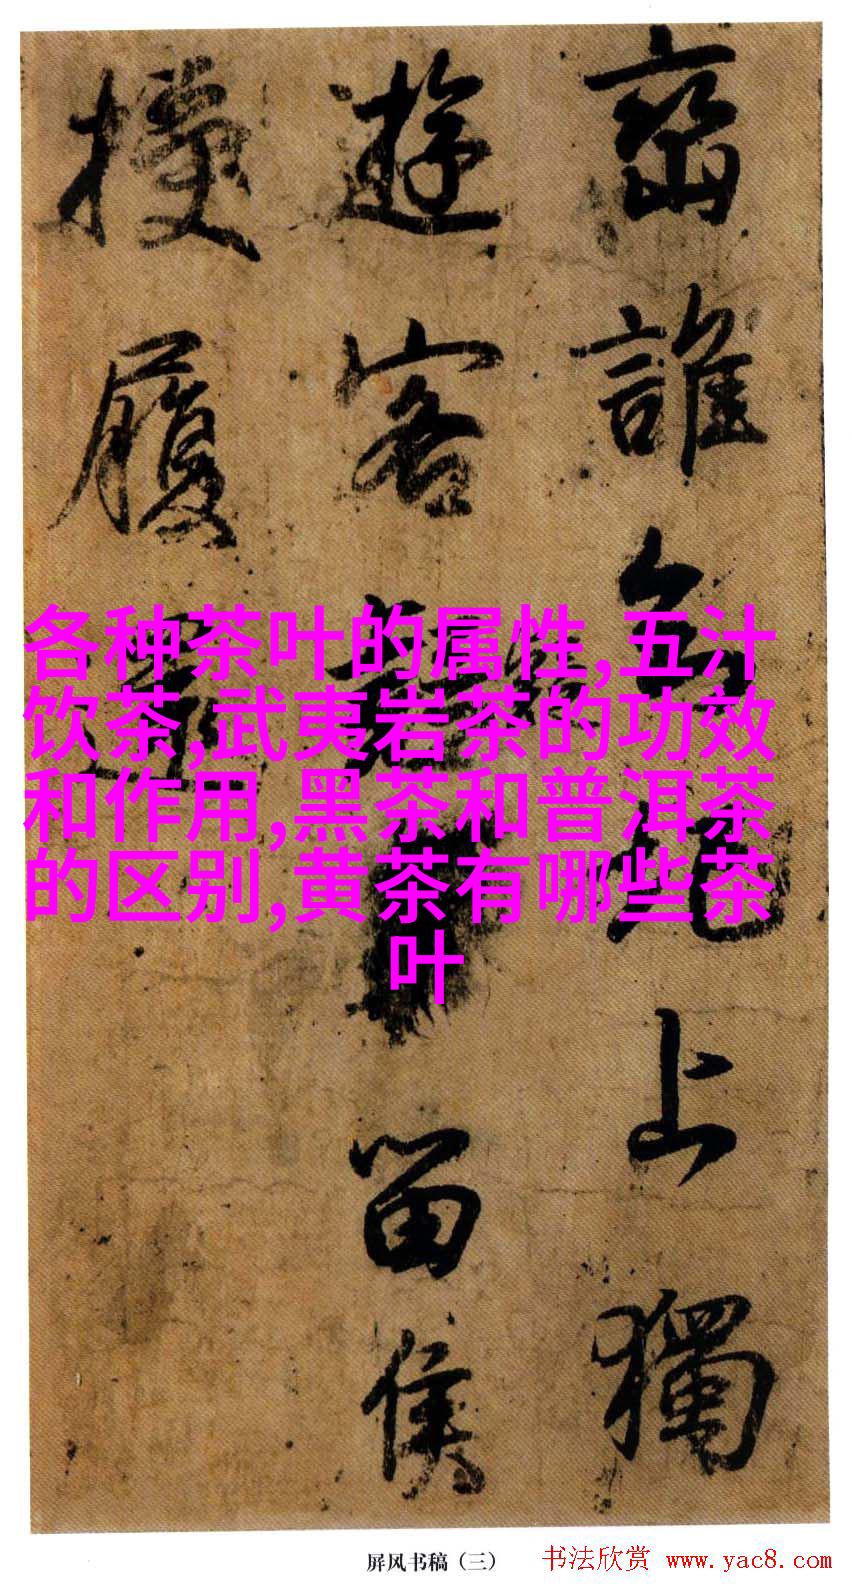 各种茶叶的属性,五汁
饮茶,武夷岩茶的功效
和作用,黑茶和普洱茶
的区别,黄茶有哪些茶
叶
峦誰上獨
遊客留侯
履
屏风书稿（三）
书法欣赏 www.yac8.com